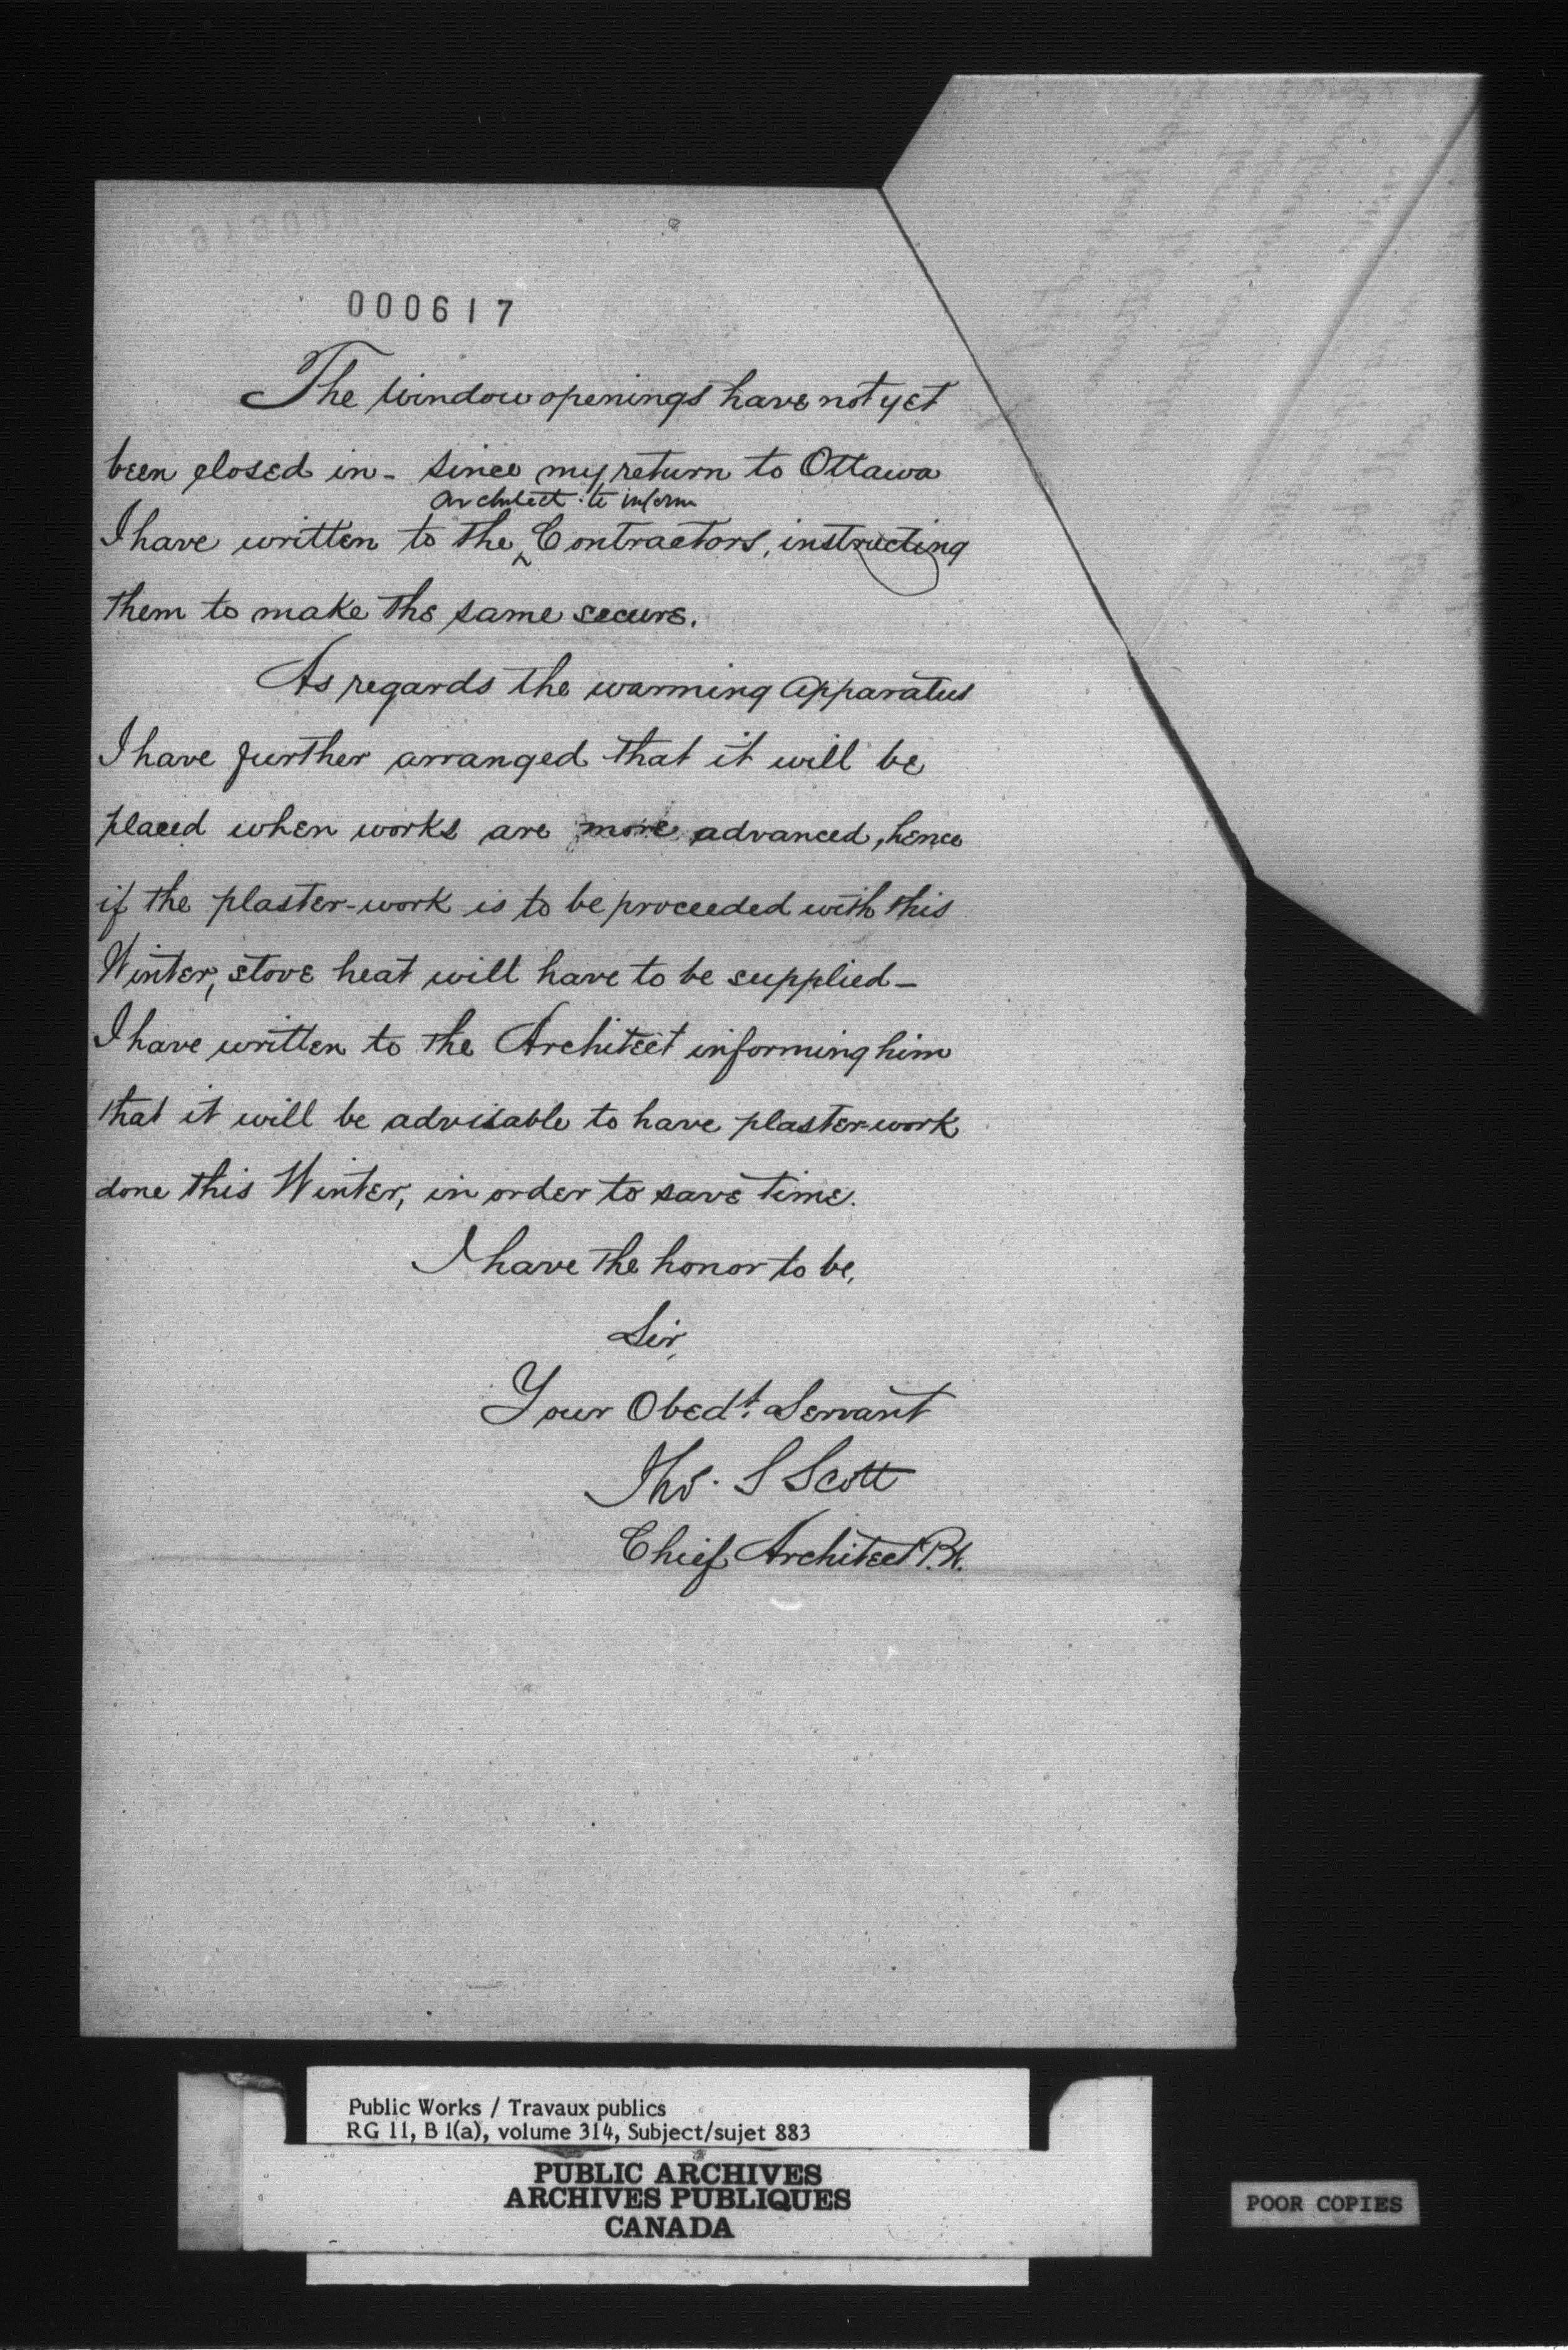 000617
The Window openings have not yet
been closed in - since my return to Ottawa
architect to inform
I have written to the ^ Contractors, instructing
them to make the same secure.
As regards the warming apparatus
I have further arranged that it will be
placed when works are more advanced, hence
if the plaster-work is to be proceeded with this
Winter, stove heat will have to be supplied -
I have written to the Architect informing him
that it will be advisable to have plaster-work
done this Winter, in order to save time.
I have the honor to be,
Sir,
Your Obedt. Servant
Thos. S Scott
Chief Architect P.W.
Public Works / Travaux publics
RG 11, B 1(a), volume 314, Subject/sujet 883
PUBLIC ARCHIVES
ARCHIVES PUBLIQUES
CANADA
POOR COPIES